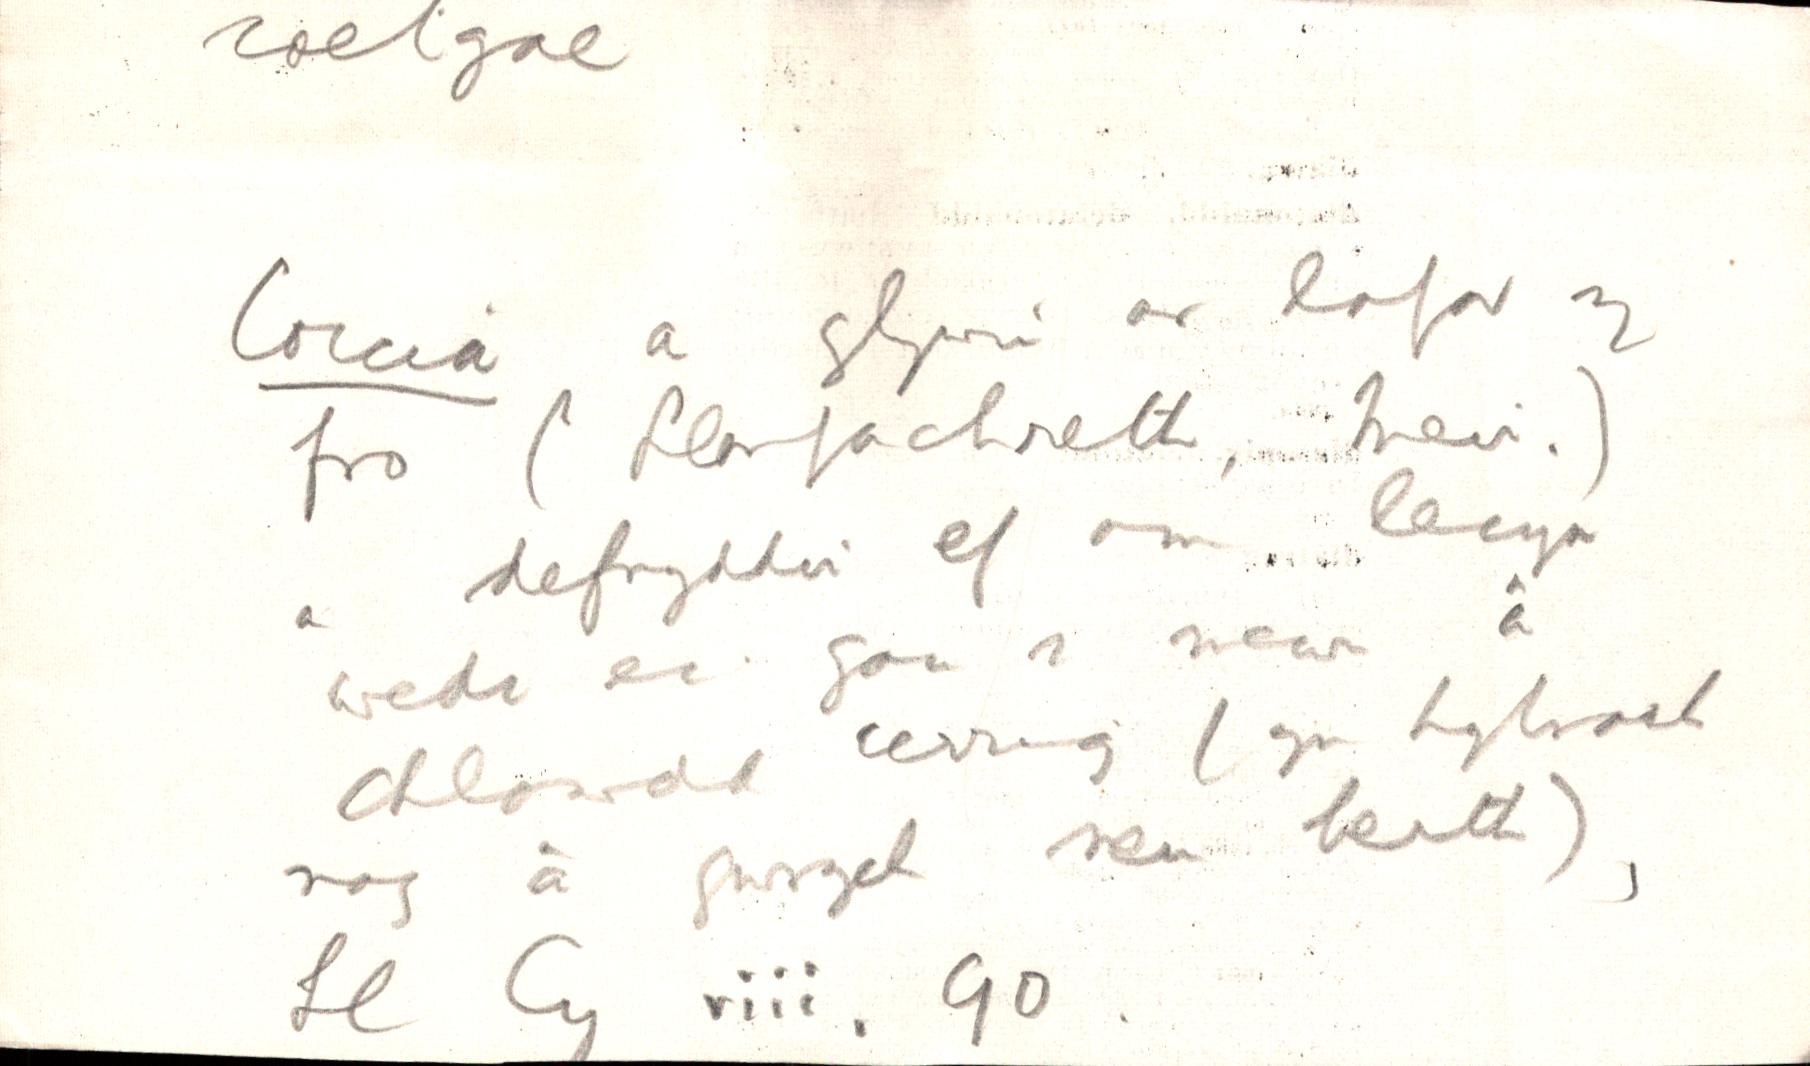 coetgae
Corcia a glywir ar lafar yy
fro (Llanfachreth, Meir.)
defnyddir ef am lecyn
a
wedi ei gau i mewn â
chlawdd cerrig (yn hytrach
nag â gwrych neu berth),
Ll Cy viii. 90.